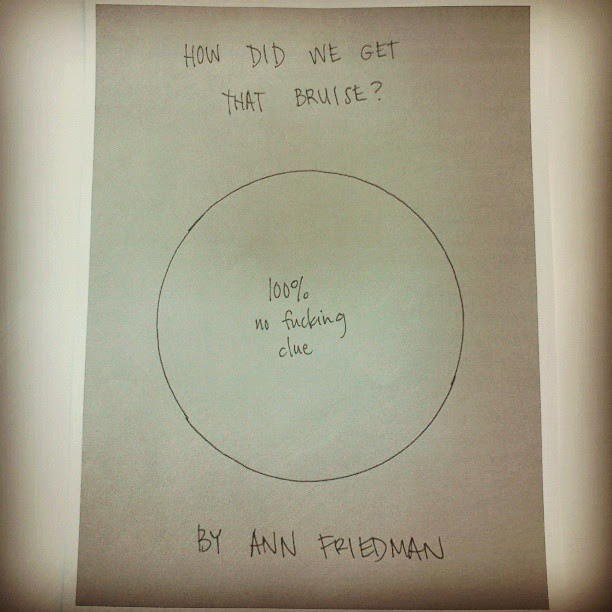 HOW DID WE GET
THAT BRUISE?
100%
no fucking
clue
BY ANN FRIEDMAN